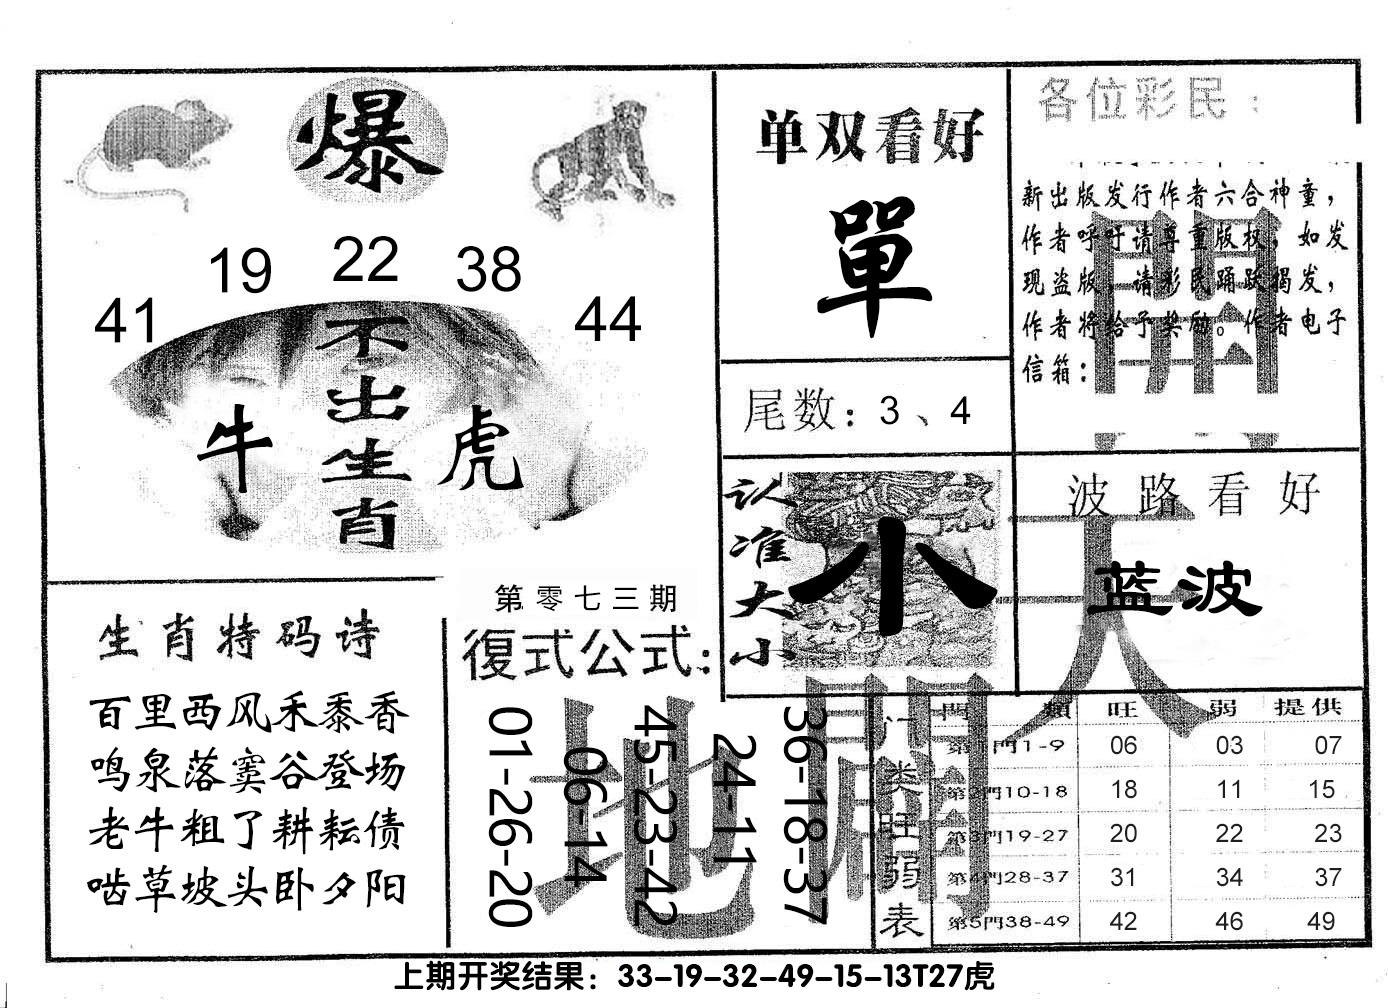 爆
19 22 38
41 44
不出生肖
牛 虎
单双看好
單
尾数：3、4
认准大小
小
各位彩民：
新出版发行作者六合神童，
作者呼吁请尊重版权，如发
现盗版，请彩民踊跃揭发，
作者将给予奖励。作者电子
信箱：
開
波路看好
蓝波
天
生肖特码诗
百里西风禾黍香
鸣泉落窦谷登场
老牛粗了耕耘债
啮草坡头卧夕阳
第零七三期
復式公式：
01-26-20
06-14
45-23-42
24-11
36-18-37
地
開
门类旺弱表
門類 旺 弱 提供
第1門1-9 06 03 07
第2門10-18 18 11 15
第3門19-27 20 22 23
第4門28-37 31 34 37
第5門38-49 42 46 49
上期开奖结果：33-19-32-49-15-13T27虎